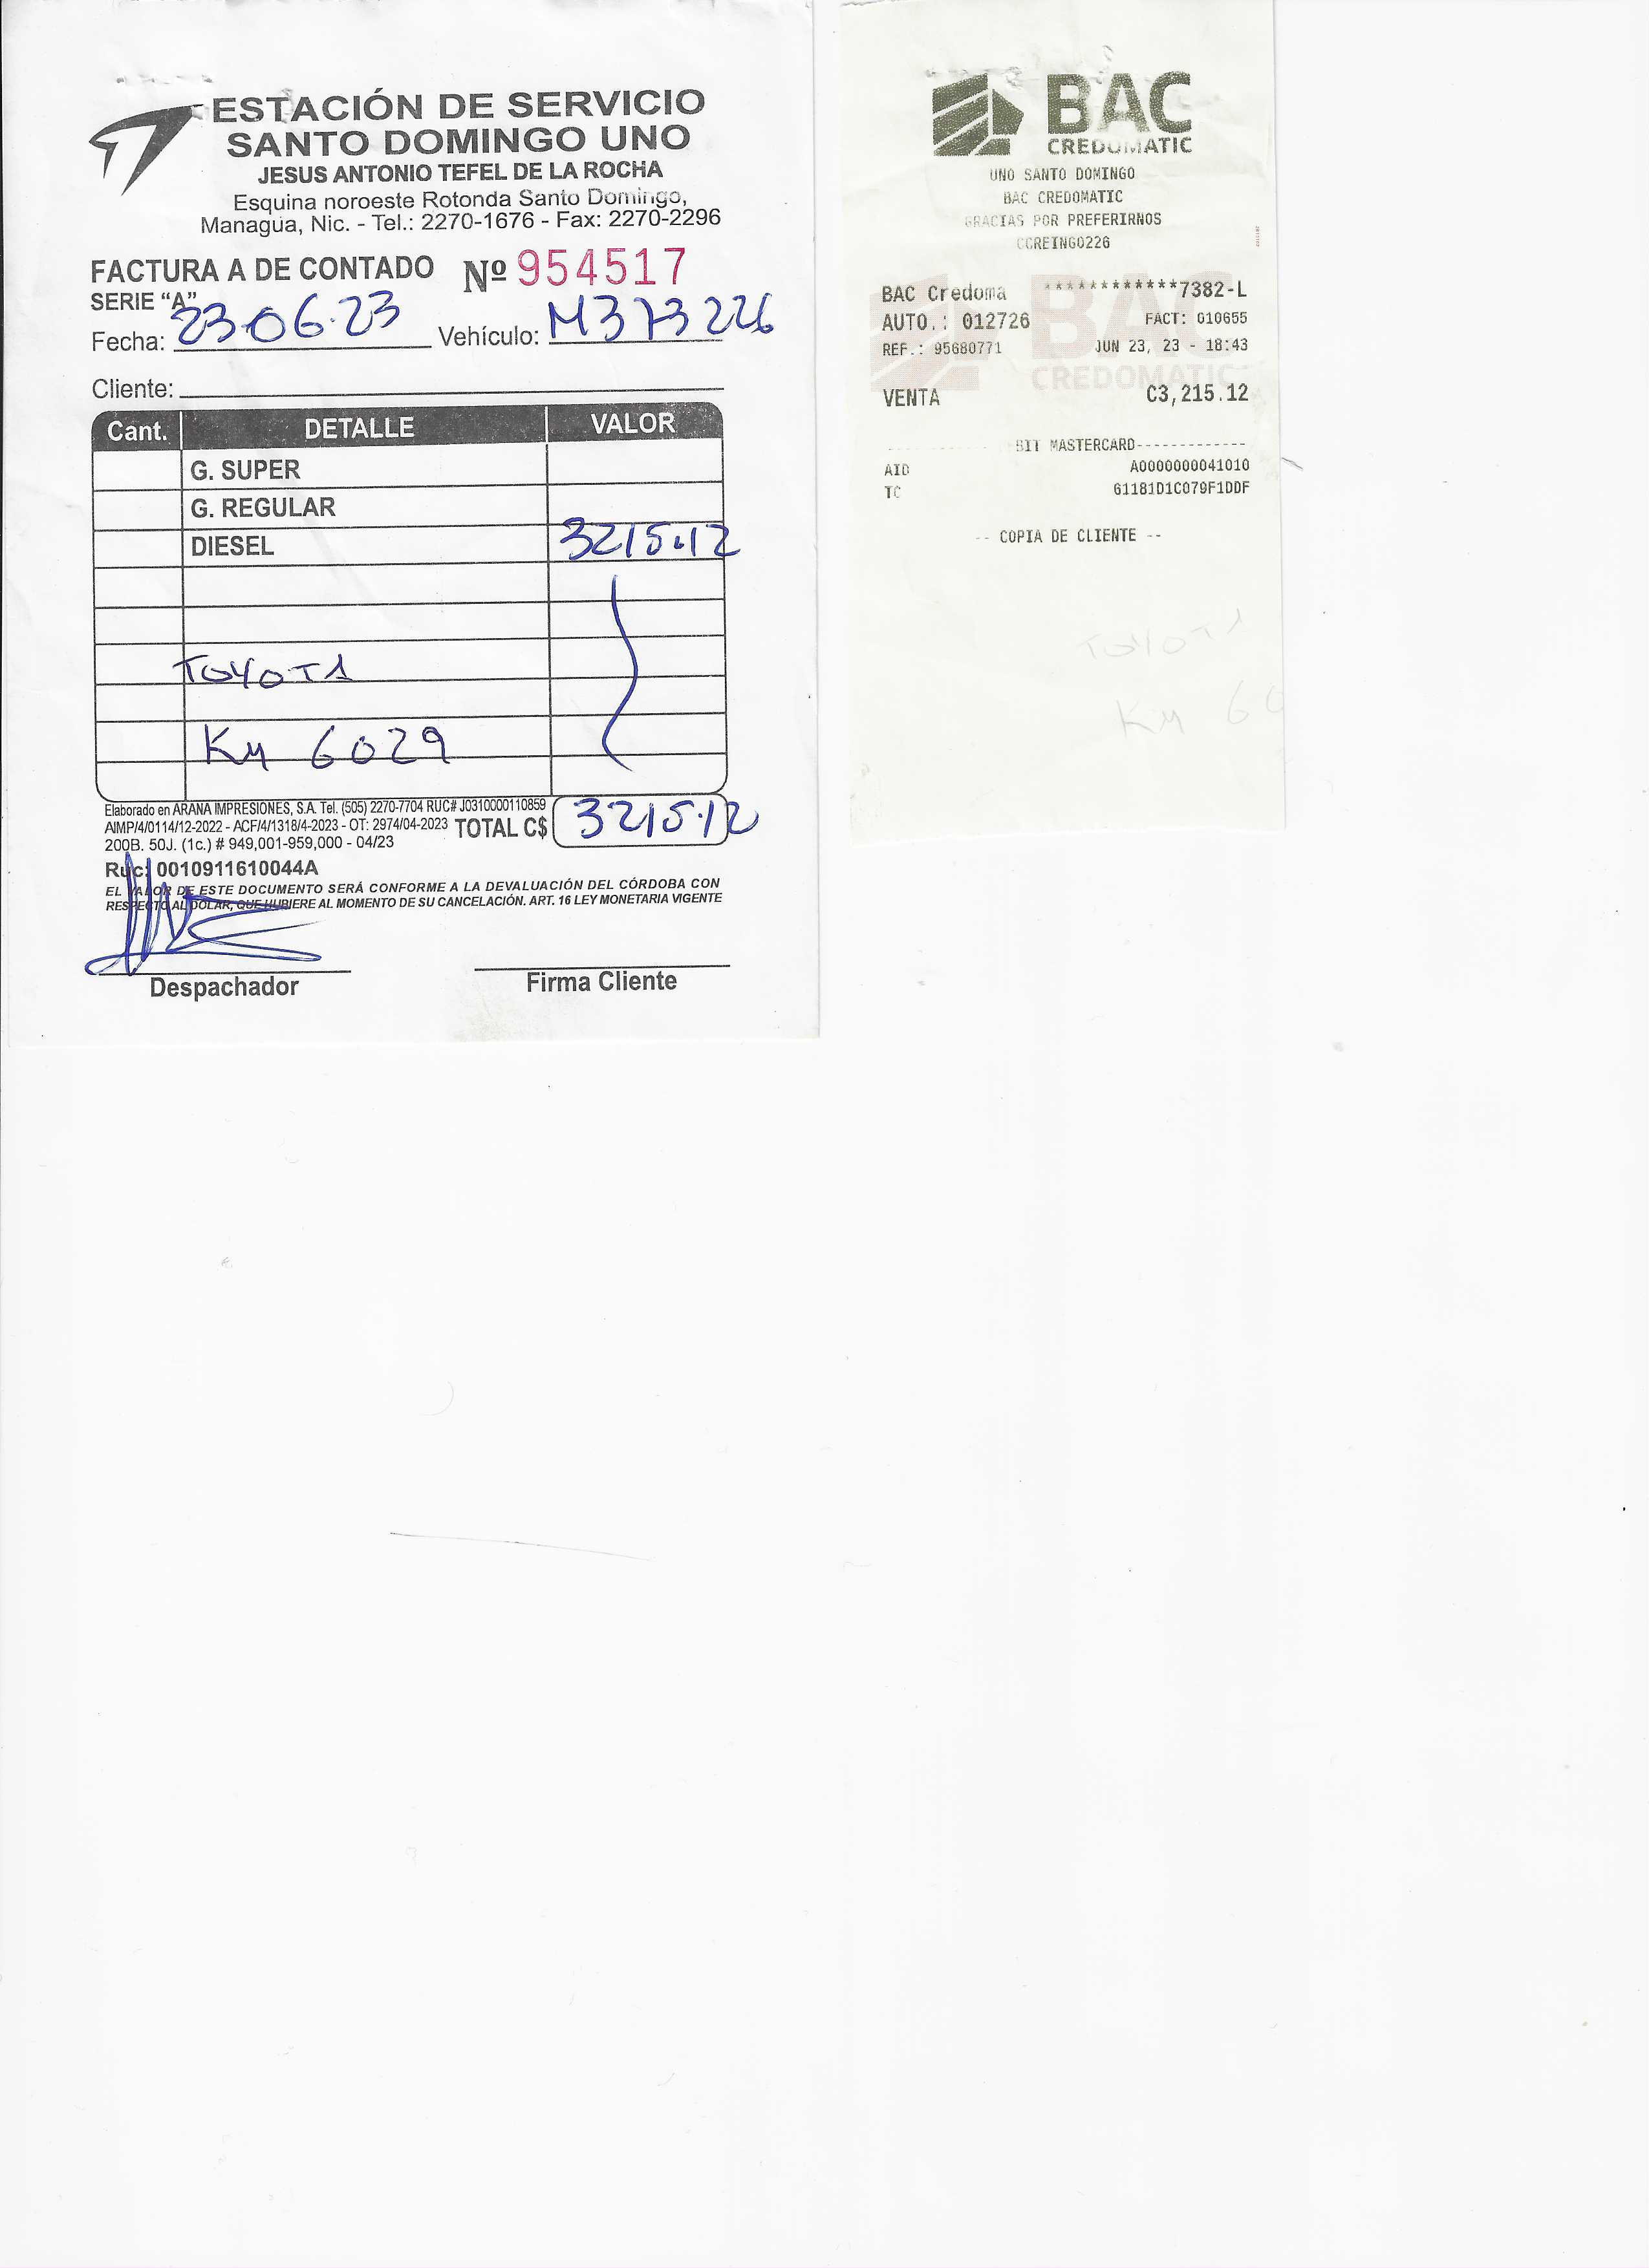 ESTACIÓN DE SERVICIO
SANTO DOMINGO UNO
JESUS ANTONIO TEFEL DE LA ROCHA
Esquina noroeste Rotonda Santo Domingo,
Managua, Nic. - Tel.: 2270-1676 - Fax: 2270-2296
FACTURA A DE CONTADO Nº 954517
SERIE "A"
Fecha: 23-06-23 Vehículo: M373226
Cliente:
Cant. DETALLE VALOR
G. SUPER
G. REGULAR
DIESEL 3215.12
TOYOTA
KM 6029
Elaborado en ARANA IMPRESIONES, S.A. Tel. (505) 2270-7704 RUC# J0310000110859
AIMP/4/0114/12-2022 - ACF/4/1318/4-2023 - OT: 2974/04-2023 TOTAL C$ 3215.12
200B. 50J. (1c.) # 949,001-959,000 - 04/23
Ruc: 0010911610044A
EL VALOR DE ESTE DOCUMENTO SERÁ CONFORME A LA DEVALUACIÓN DEL CÓRDOBA CON
RESPECTO AL DOLAR, QUE HUBIERE AL MOMENTO DE SU CANCELACIÓN. ART. 16 LEY MONETARIA VIGENTE
Despachador Firma Cliente
BAC
CREDOMATIC
UNO SANTO DOMINGO
BAC CREDOMATIC
GRACIAS POR PREFERIRNOS
CCREING0226
BAC Credoma ************7382-L
AUTO.: 012726 FACT: 010655
REF.: 95680771 JUN 23, 23 - 18:43
BAC
CREDOMATIC
VENTA C3,215.12
BIT MASTERCARD-------------
AID A0000000041010
TC 61181D1C079F1DDF
-- COPIA DE CLIENTE --
TOYOTA
KM 60